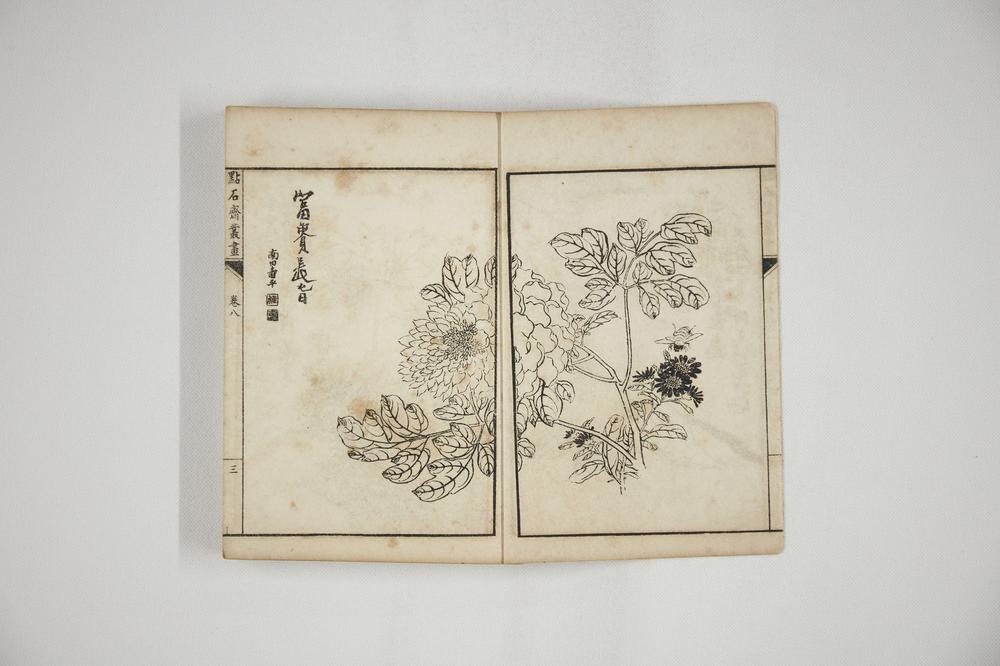 富貴長也日
南田壽平
點石齋叢畫
卷八
三